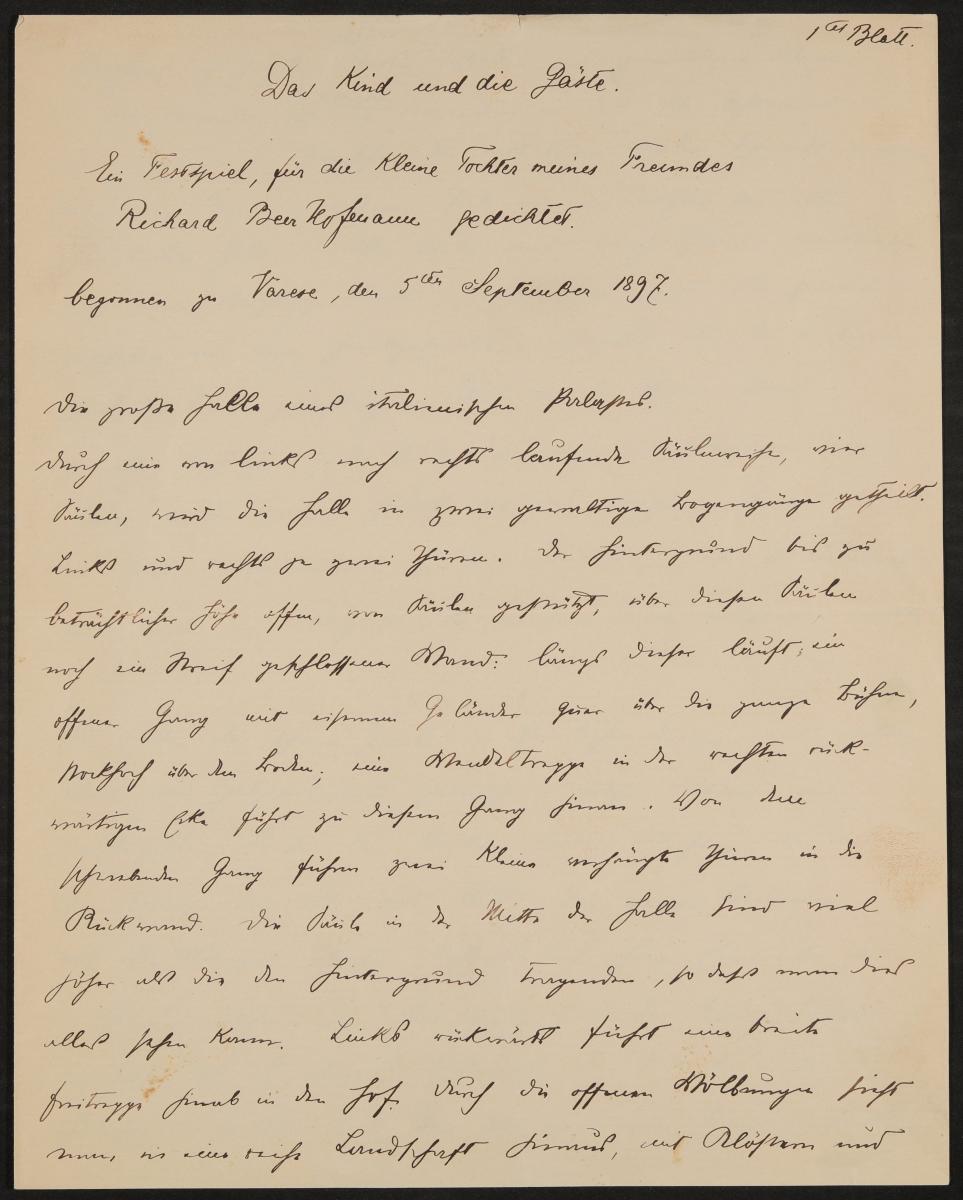 1tes Blatt.
Das Kind und die Gäste.
Ein Festspiel, für die kleine Tochter meines Freundes
Richard Beer Hofmann gedichtet.
begonnen zu Varese, den 5ten September 1897.
Die große Halle eines italienischen Palastes.
Durch eine von links nach rechts laufende Säulenreihe, vier
Säulen, wird die Halle in zwei gewaltige Bogengänge getheilt.
Links und rechts je zwei Thüren. Der Hintergrund bis zu
beträchtlicher Höhe offen, von Säulen gestützt, über diesen Säulen
noch ein Streif geschlossener Wand: längs dieser läuft, ein
offener Gang mit eisernem Geländer quer über die ganze Bühne,
stockhoch über dem Boden; eine Wendeltreppe in der rechten rück-
wärtigen Ecke führt zu diesem Gang hinan. Von dem
schwebenden Gang führen zwei kleine verhängte Thüren in die
Rückwand. Die Säulen in der Mitte der Halle sind viel
höher als die den Hintergrund tragenden, so dass man dies
alles sehen kann. Links rückwärts führt eine breite
Freitreppe hinab in den Hof. Durch die offenen Wölbungen sieht
man in eine reiche Landschaft hinaus, mit Klöstern und